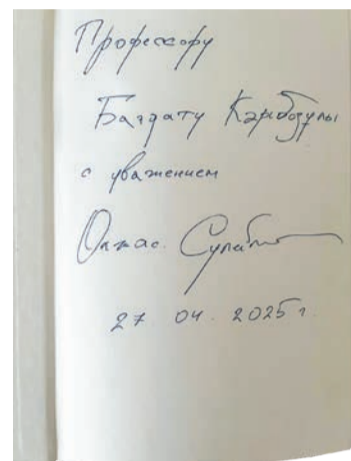 Профессору
Багдату Кәрібозұлы
с уважением
Олжас.
27 04. 2025 г.